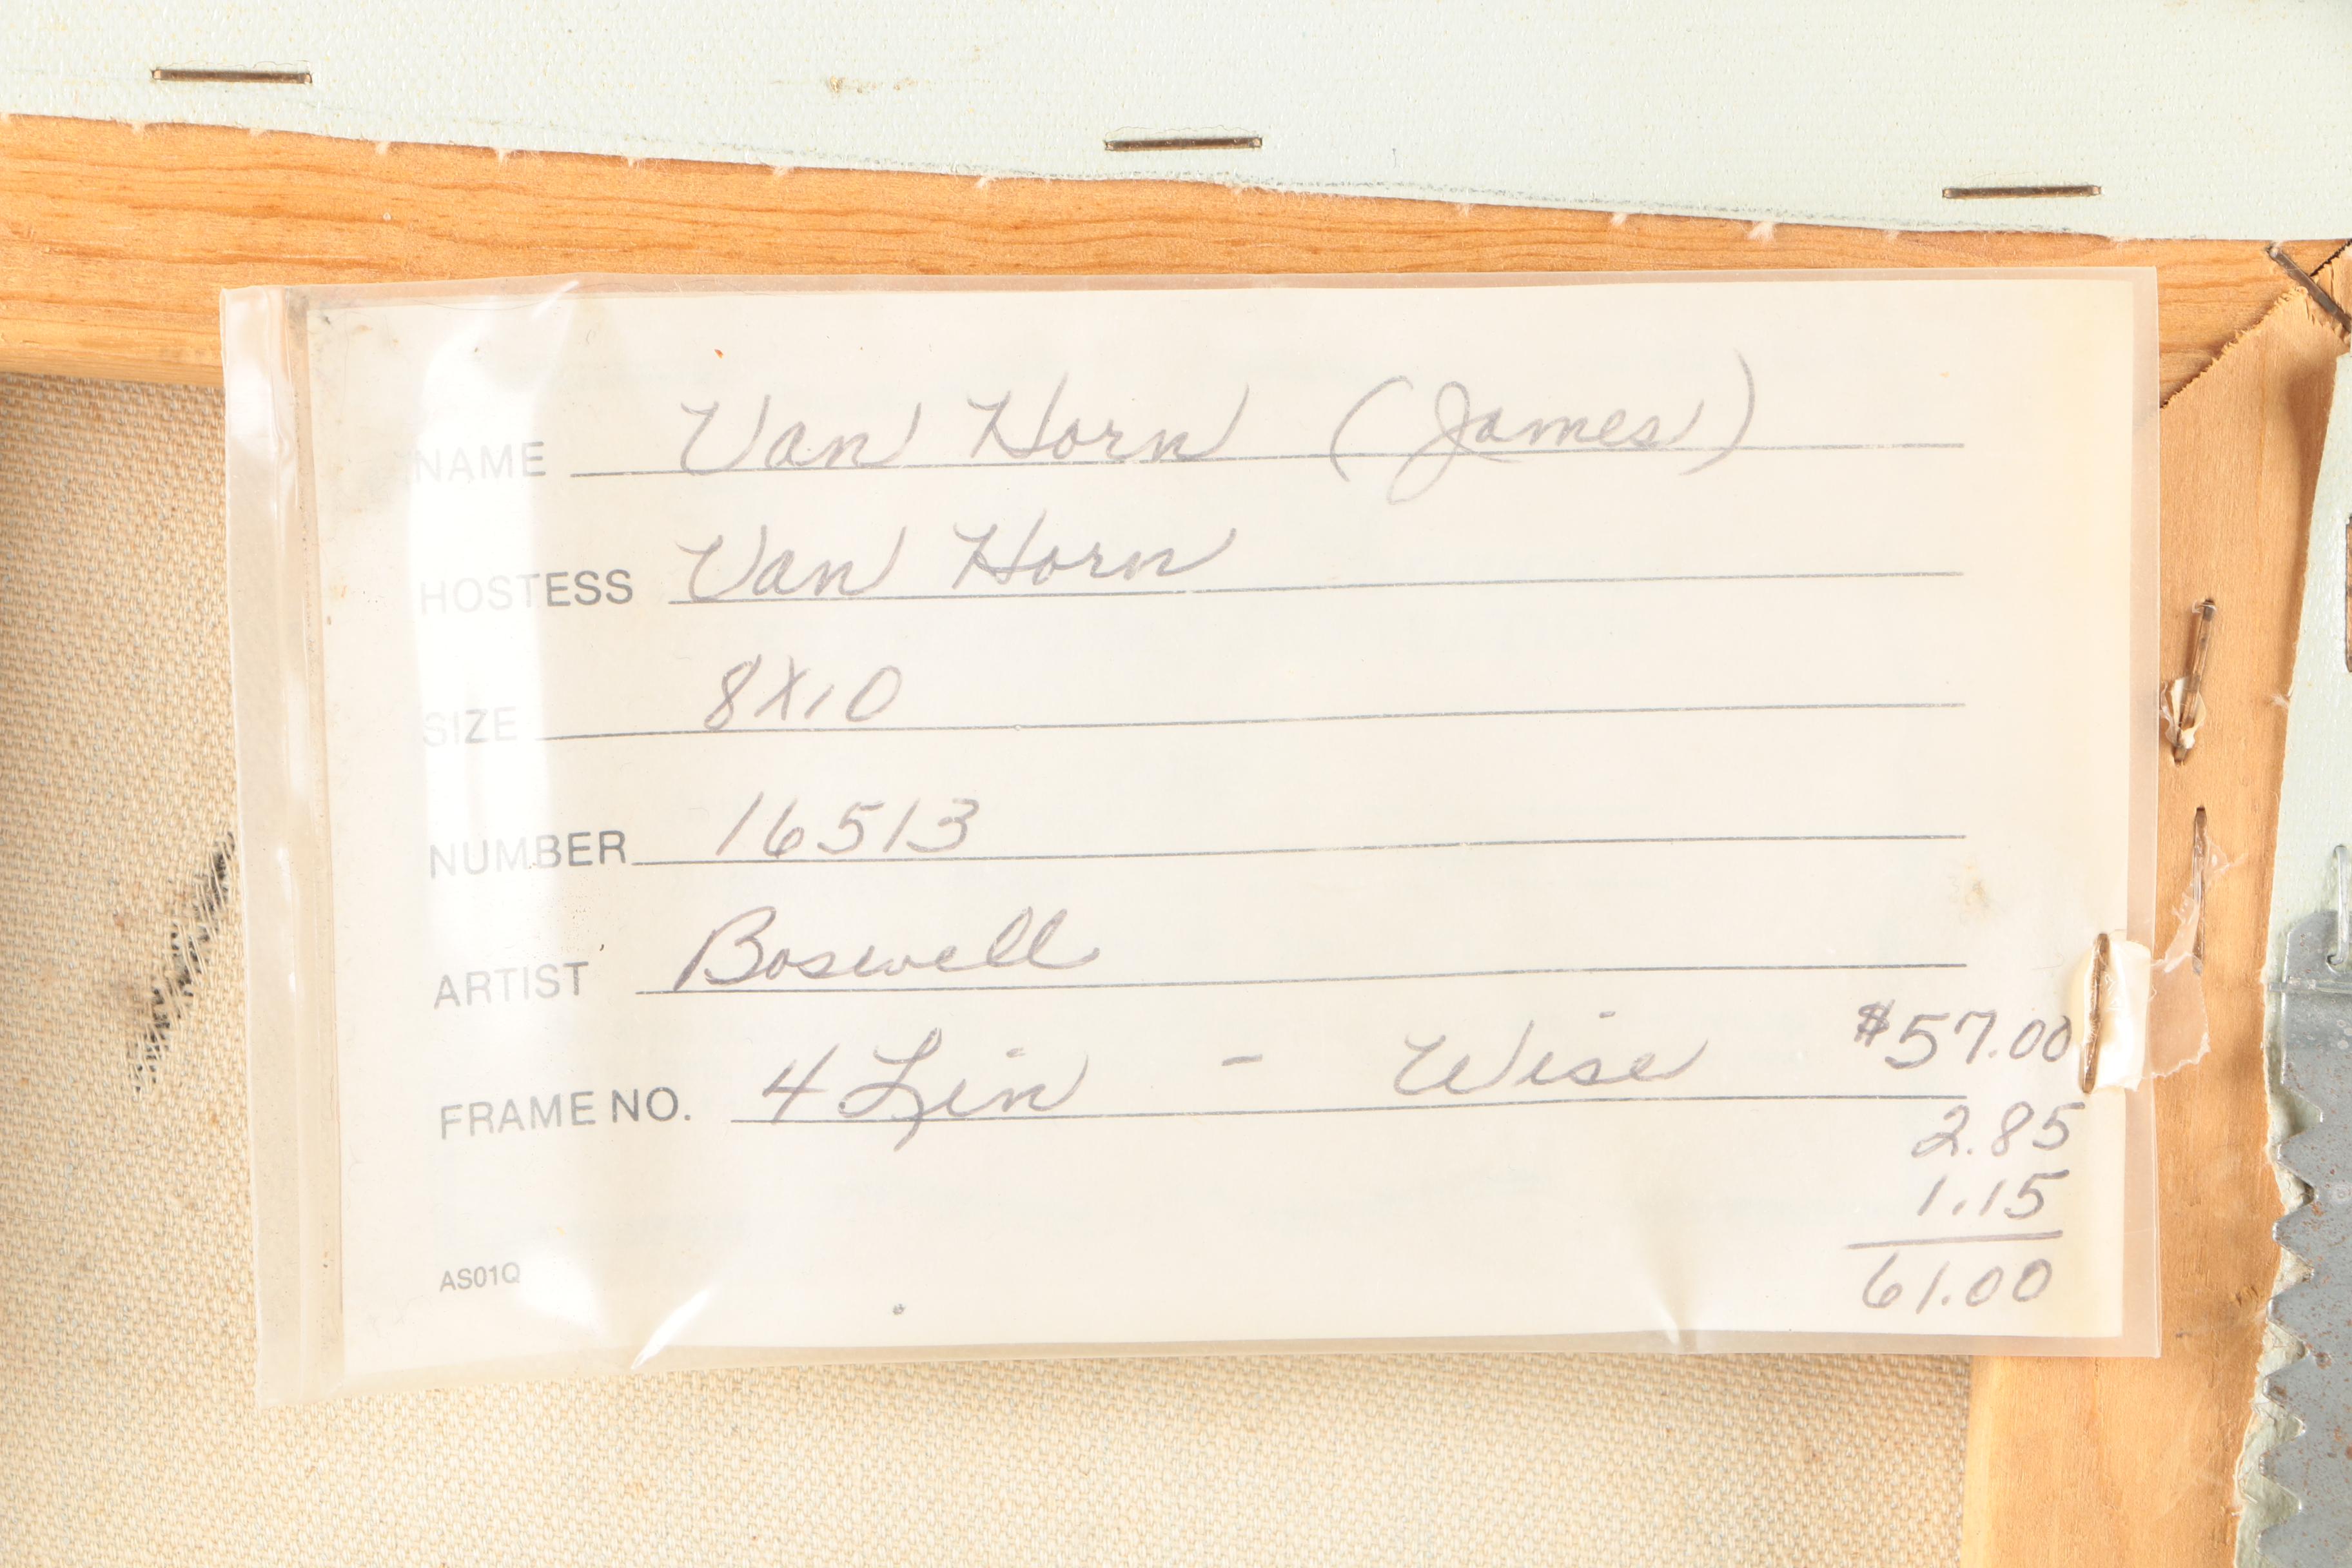 NAME Van Horn (James)
HOSTESS Van Horn
SIZE 8X10
NUMBER 16513
ARTIST Boswell
FRAME NO. 4 Lin - Wise $57.00
2.85
1.15
61.00
AS01Q